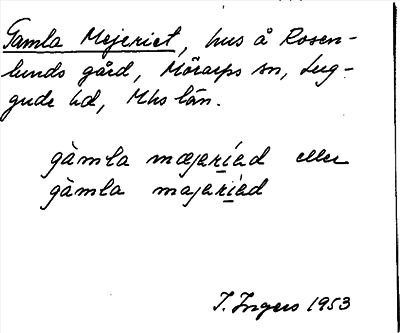 Gamla Mejeriet, hus å Rosen-
lunds gård, Mörarps sn, Lug-
gude hd, Mhs län.
gàmla mæjeríəd eller
gàmla majeríəd
I. Ingers 1953